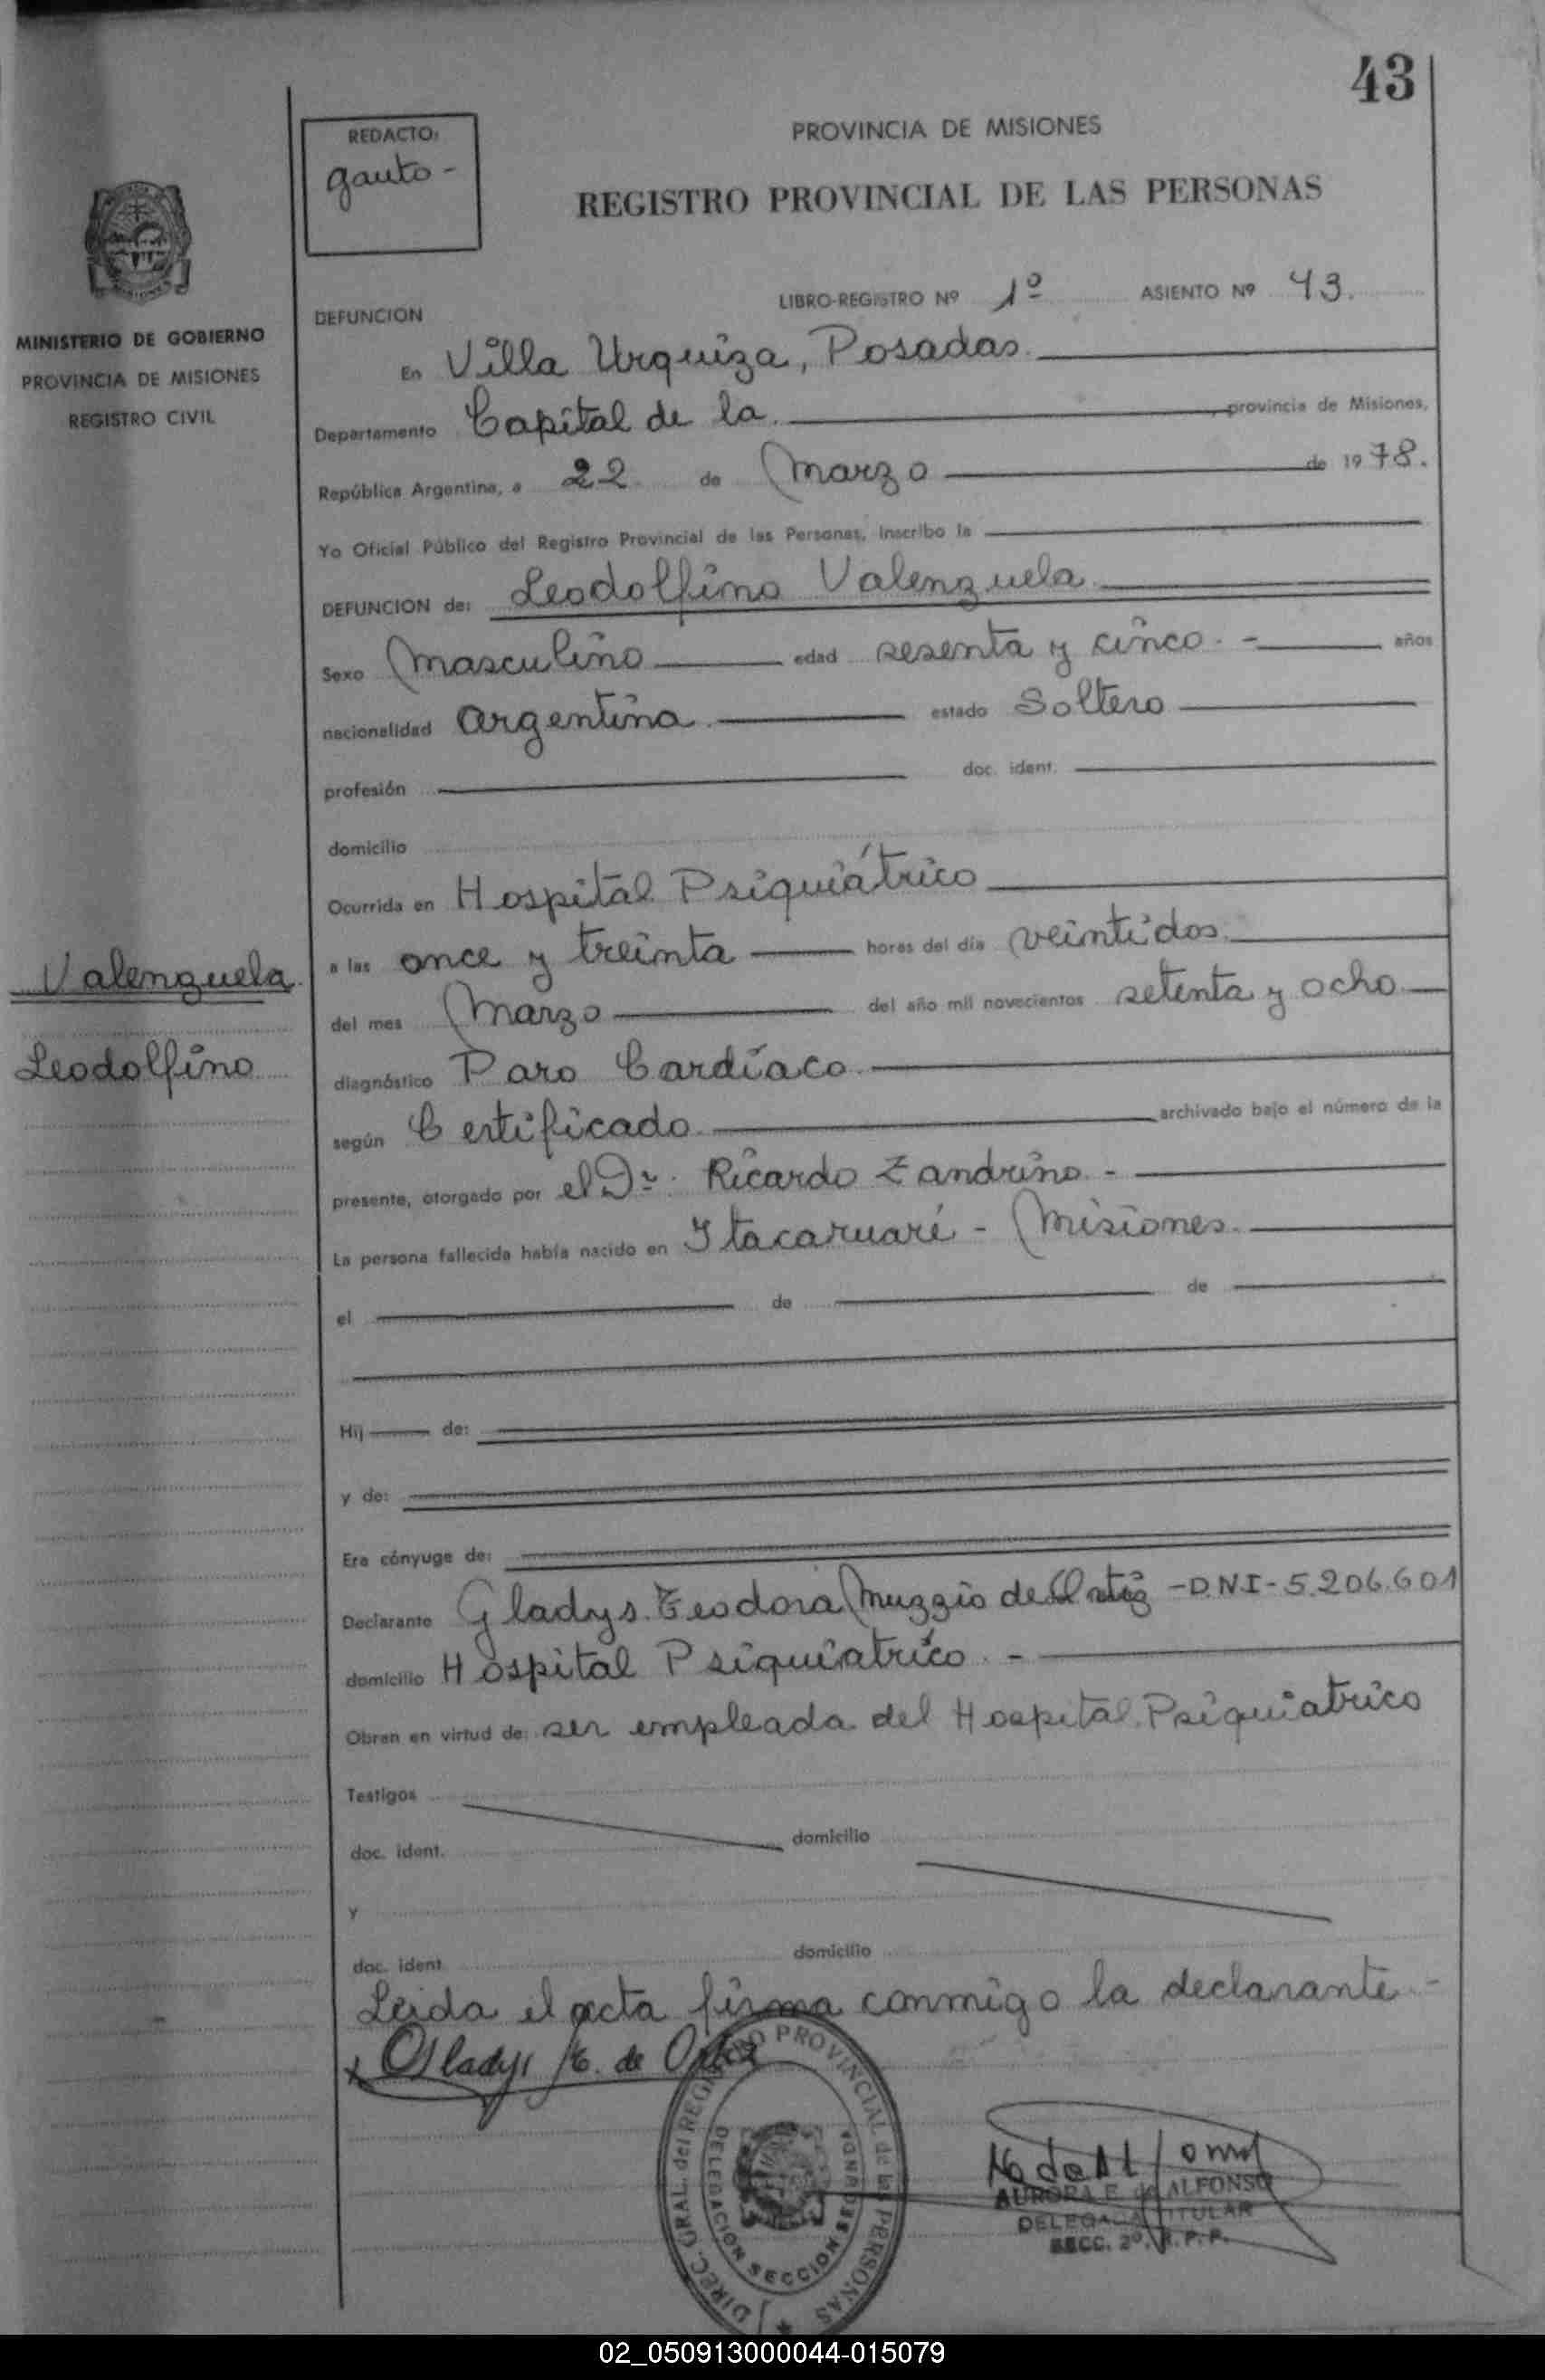 43
REDACTO:
gauto -
PROVINCIA DE MISIONES
REGISTRO PROVINCIAL DE LAS PERSONAS
MINISTERIO DE GOBIERNO
PROVINCIA DE MISIONES
REGISTRO CIVIL
LIBRO-REGISTRO Nº 1º ASIENTO Nº 43.
DEFUNCION
En Villa Urquiza, Posadas.
Departamento Capital de la , provincia de Misiones,
República Argentina, a 22 de Marzo de 1978.
Yo Oficial Público del Registro Provincial de las Personas, inscribo la
DEFUNCION de: Leodolfino Valenzuela
Sexo Masculino edad sesenta y cinco. - años
nacionalidad argentina. estado Soltero
profesión doc. ident.
domicilio
Ocurrida en Hospital Psiquiátrico
a las once y treinta horas del día veintidos.
Valenzuela
del mes Marzo del año mil novecientos setenta y ocho.
Leodolfino
diagnóstico Paro Cardíaco.
según Certificado. archivado bajo el número de la
presente, otorgado por el Dr. Ricardo Zandrino. -
La persona fallecida había nacido en Itacaruaré - Misiones.
el de de
Hij de:
y de:
Era cónyuge de:
Declarante Gladys Teodora Muzzio de Ortiz - D.N.I - 5.206.601
domicilio Hospital Psiquiatrico. -
Obran en virtud de: ser empleada del Hospital Psiquiatrico
Testigos
doc. ident. domicilio
y
doc. ident. domicilio
Leida el acta firma conmigo la declarante -
x Gladys T. de Ortiz
DIREC. GRAL. del REGISTRO PROVINCIAL de las PERSONAS
DELEGACION SECCION SEGUNDA
AURORA E. de ALFONSO
DELEGADA TITULAR
SECC. 2º. R. P. P.
02_050913000044-015079